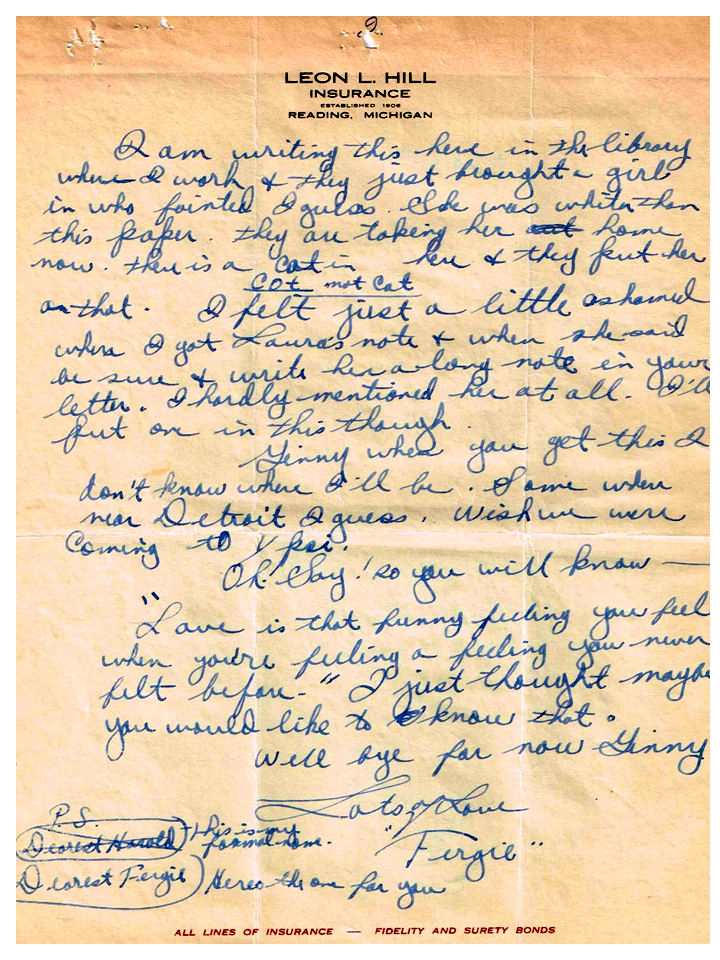 2
LEON L. HILL
INSURANCE
ESTABLISHED 1906
READING, MICHIGAN
I am writing this here in the library
where I work & they just brought a girl
in who fainted I guess. She was whiter than
this paper. they are taking her out home
now. there is a cot in here & they put her
cot not cat
on that. I felt just a little ashamed
when I got Laura's note & when she said
be sure & write her a long note in your
letter. I hardly mentioned her at all. I'll
put one in this though.
Ginny when you get this I
don't know where I'll be. Some where
near Detroit I guess. Wish we were
Coming to Ypsi.
Oh! Say! so you will know —
"Love is that funny feeling you feel
when you're feeling a feeling you never
felt before." I just thought maybe
you would like to know that.
Well bye for now Ginny
Lots of Love
"Fergie"
P.S.
Dearest Harold) this is my
formal name.
Dearest Fergie) Heres the one for you
ALL LINES OF INSURANCE — FIDELITY AND SURETY BONDS